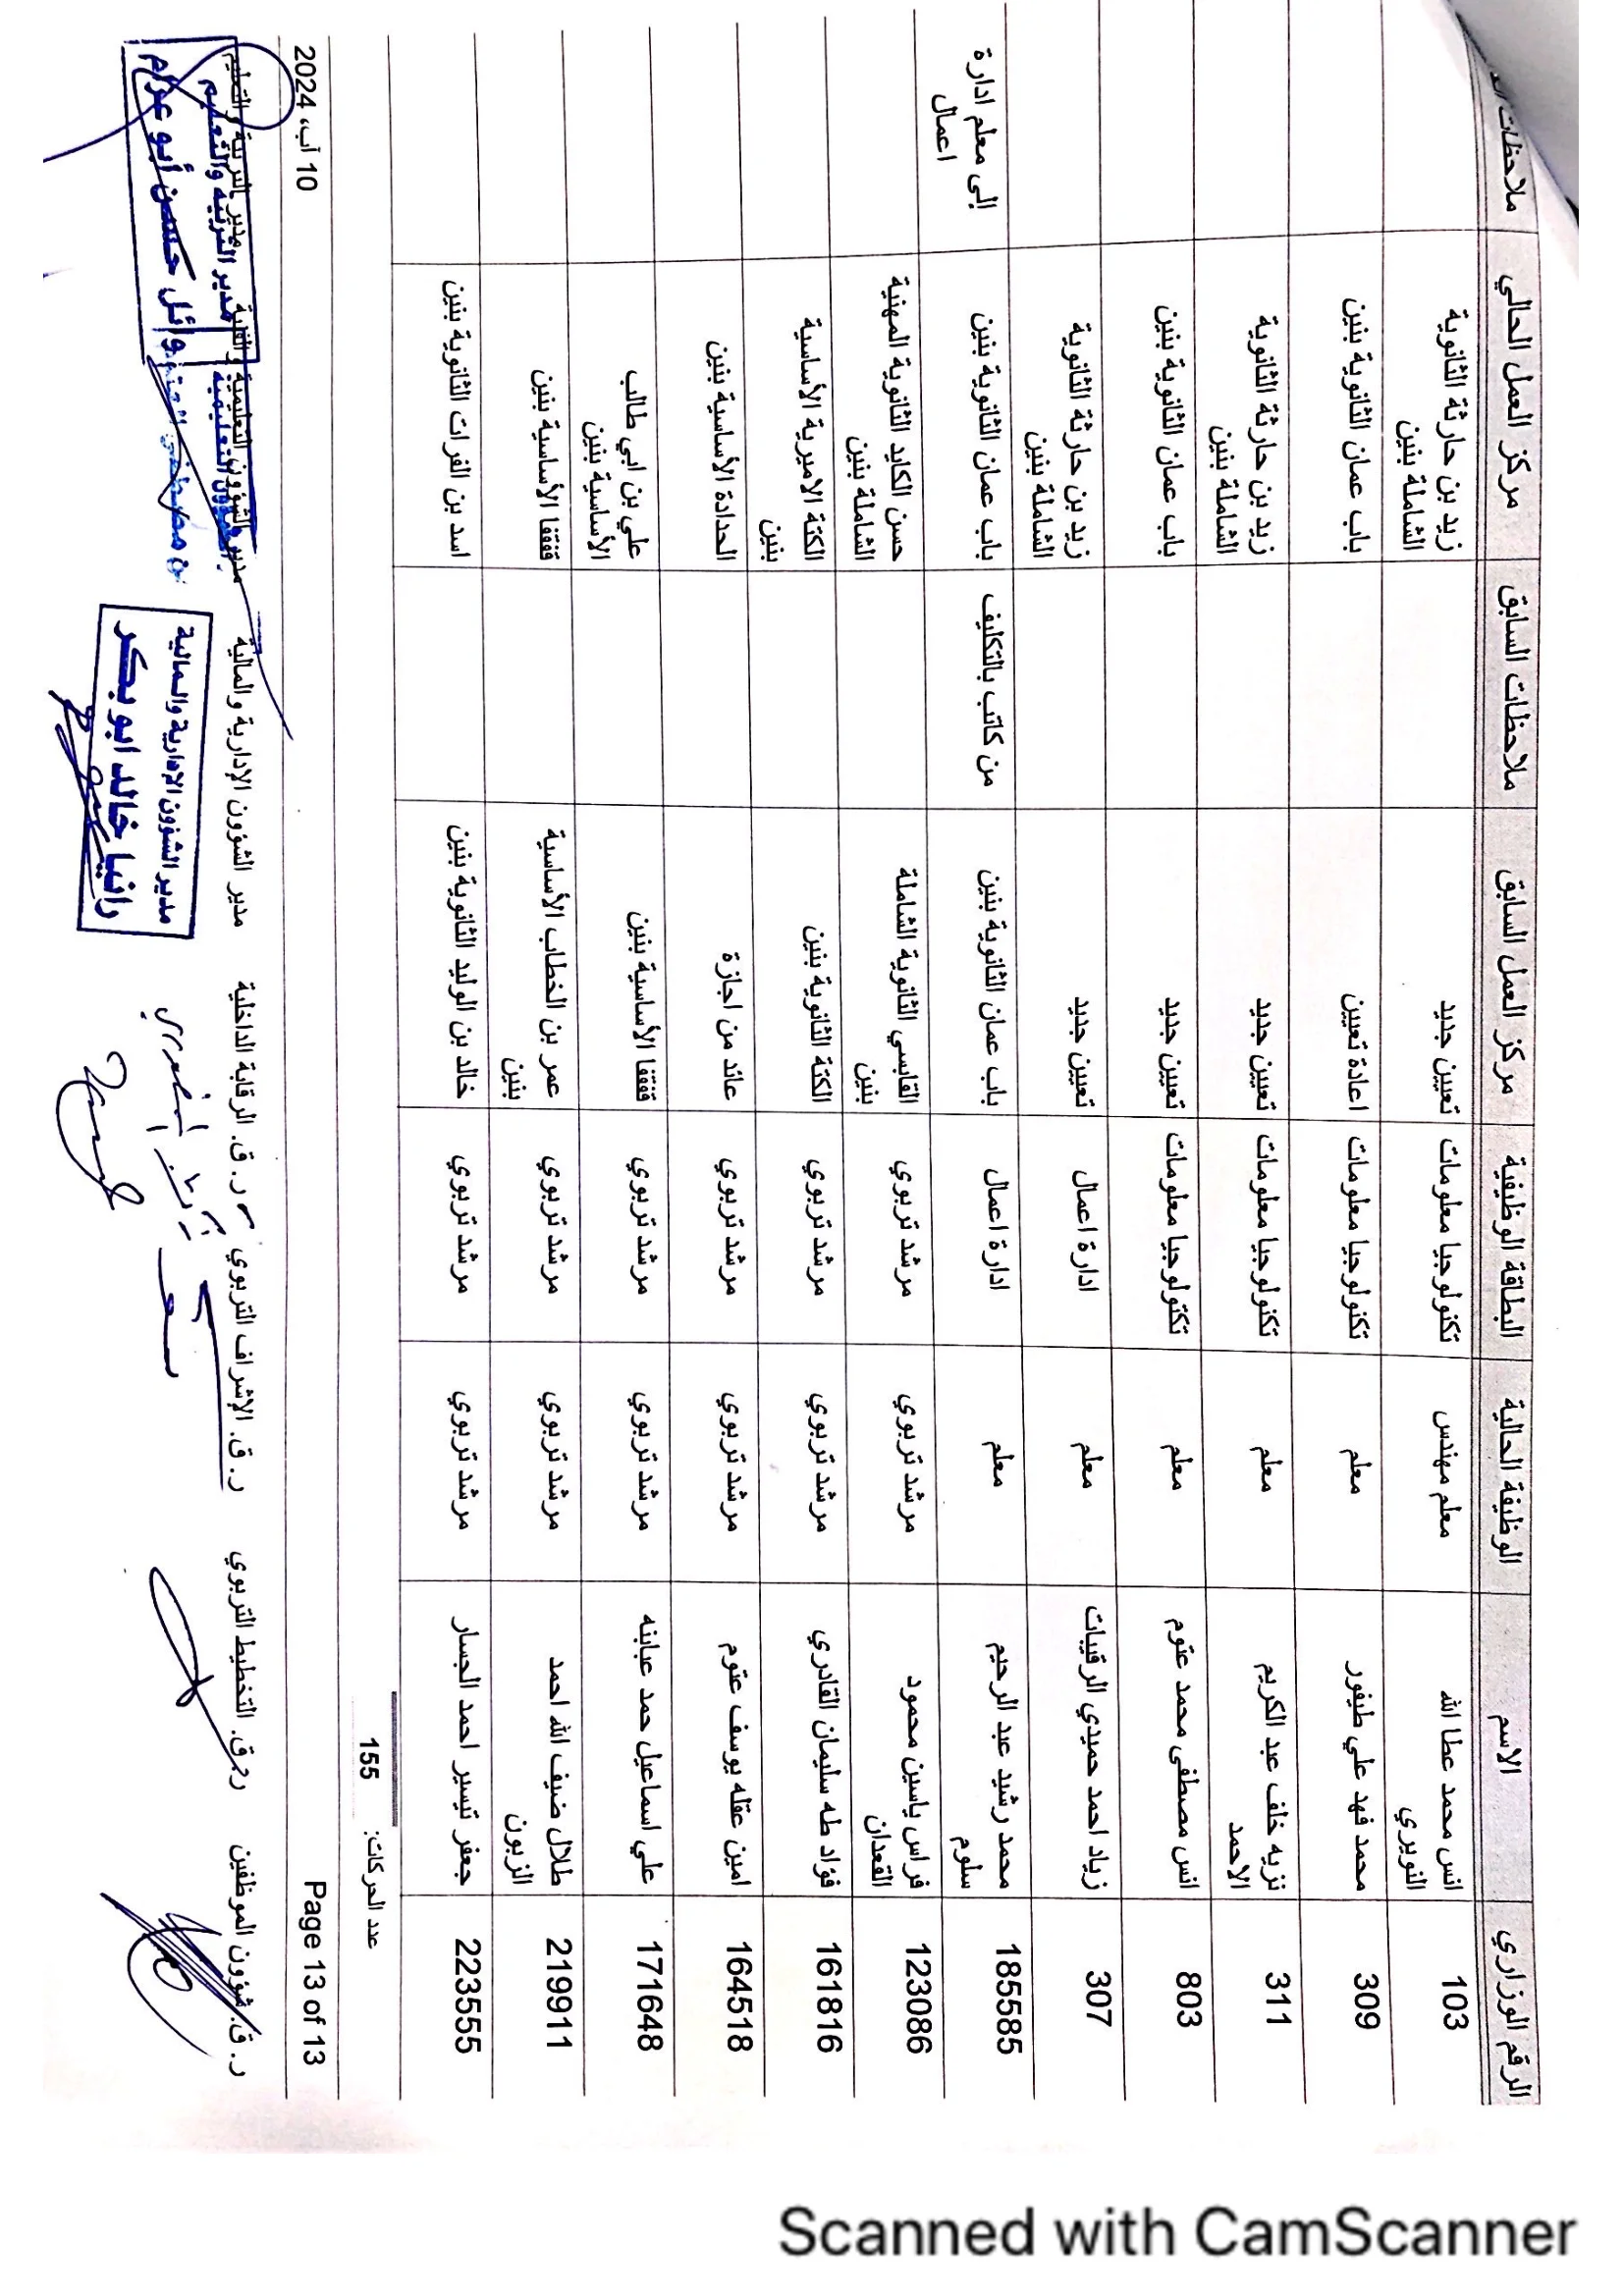 الرقم الوزاري الاسم الوظيفة الحالية البطاقة الوظيفية مركز العمل السابق ملاحظات السابق مركز العمل الحالي ملاحظات
103 انس محمد عطا الله معلم مهندس تكنولوجيا معلومات تعيين جديد زيد بن حارثة الثانوية
النويري الشاملة بنين
309 محمد فهد علي طيفور معلم تكنولوجيا معلومات اعادة تعيين باب عمان الثانوية بنين
311 نزيه خلف عبد الكريم معلم تكنولوجيا معلومات تعيين جديد زيد بن حارثة الثانوية
الاحمد الشاملة بنين
803 انس مصطفى محمد عتوم معلم تكنولوجيا معلومات تعيين جديد باب عمان الثانوية بنين
307 زياد احمد حميدي الرقيبات معلم ادارة اعمال تعيين جديد زيد بن حارثة الثانوية
الشاملة بنين
185585 محمد رشيد عبد الرحيم معلم ادارة اعمال باب عمان الثانوية بنين من كاتب بالتكليف باب عمان الثانوية بنين الى معلم ادارة
سلوم اعمال
123086 فراس ياسين محمود مرشد تربوي مرشد تربوي القابسي الثانوية الشاملة حسن الكايد الثانوية المهنية
القعدان بنين الشاملة بنين
161816 فؤاد طه سليمان القادري مرشد تربوي مرشد تربوي الكتة الثانوية بنين الكتة الاميرية الأساسية
بنين
164518 امين عقله يوسف عتوم مرشد تربوي مرشد تربوي عائد من اجازة الحدادة الأساسية بنين
171648 علي اسماعيل حمد عبابنه مرشد تربوي مرشد تربوي قفقفا الأساسية بنين علي بن ابي طالب
الأساسية بنين
219911 طلال ضيف الله احمد مرشد تربوي مرشد تربوي عمر بن الخطاب الأساسية قفقفا الأساسية بنين
الزبون بنين
223555 جعفر تيسير احمد الجسار مرشد تربوي مرشد تربوي خالد بن الوليد الثانوية بنين اسد بن الفرات الثانوية بنين
عدد الحركات: 155
Page 13 of 13 10 آب، 2024
ر. ق. شؤون الموظفين ر. ق. التخطيط التربوي ر. ق. الإشراف التربوي ر. ق. الرقابة الداخلية مدير الشؤون الإدارية والمالية مدير الشؤون التعليمية والفنية مدير التربية والتعليم
مدير الشؤون الإدارية والمالية
رانيا خالد ابو بكر
مدير التربية والتعليم
وائل حسن أبو عزام
Scanned with CamScanner